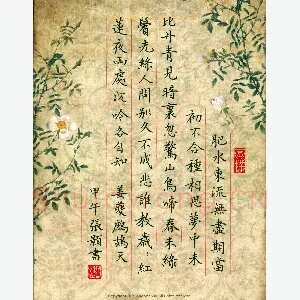 肥水東流無盡期當
初不合種相思夢中未
比丹青見暗裏忽驚山鳥啼春未綠
鬢先絲人間別久不成悲誰教歲々紅
蓮夜兩處沉吟各自知 姜夔鷓鴣天
甲午張顥書